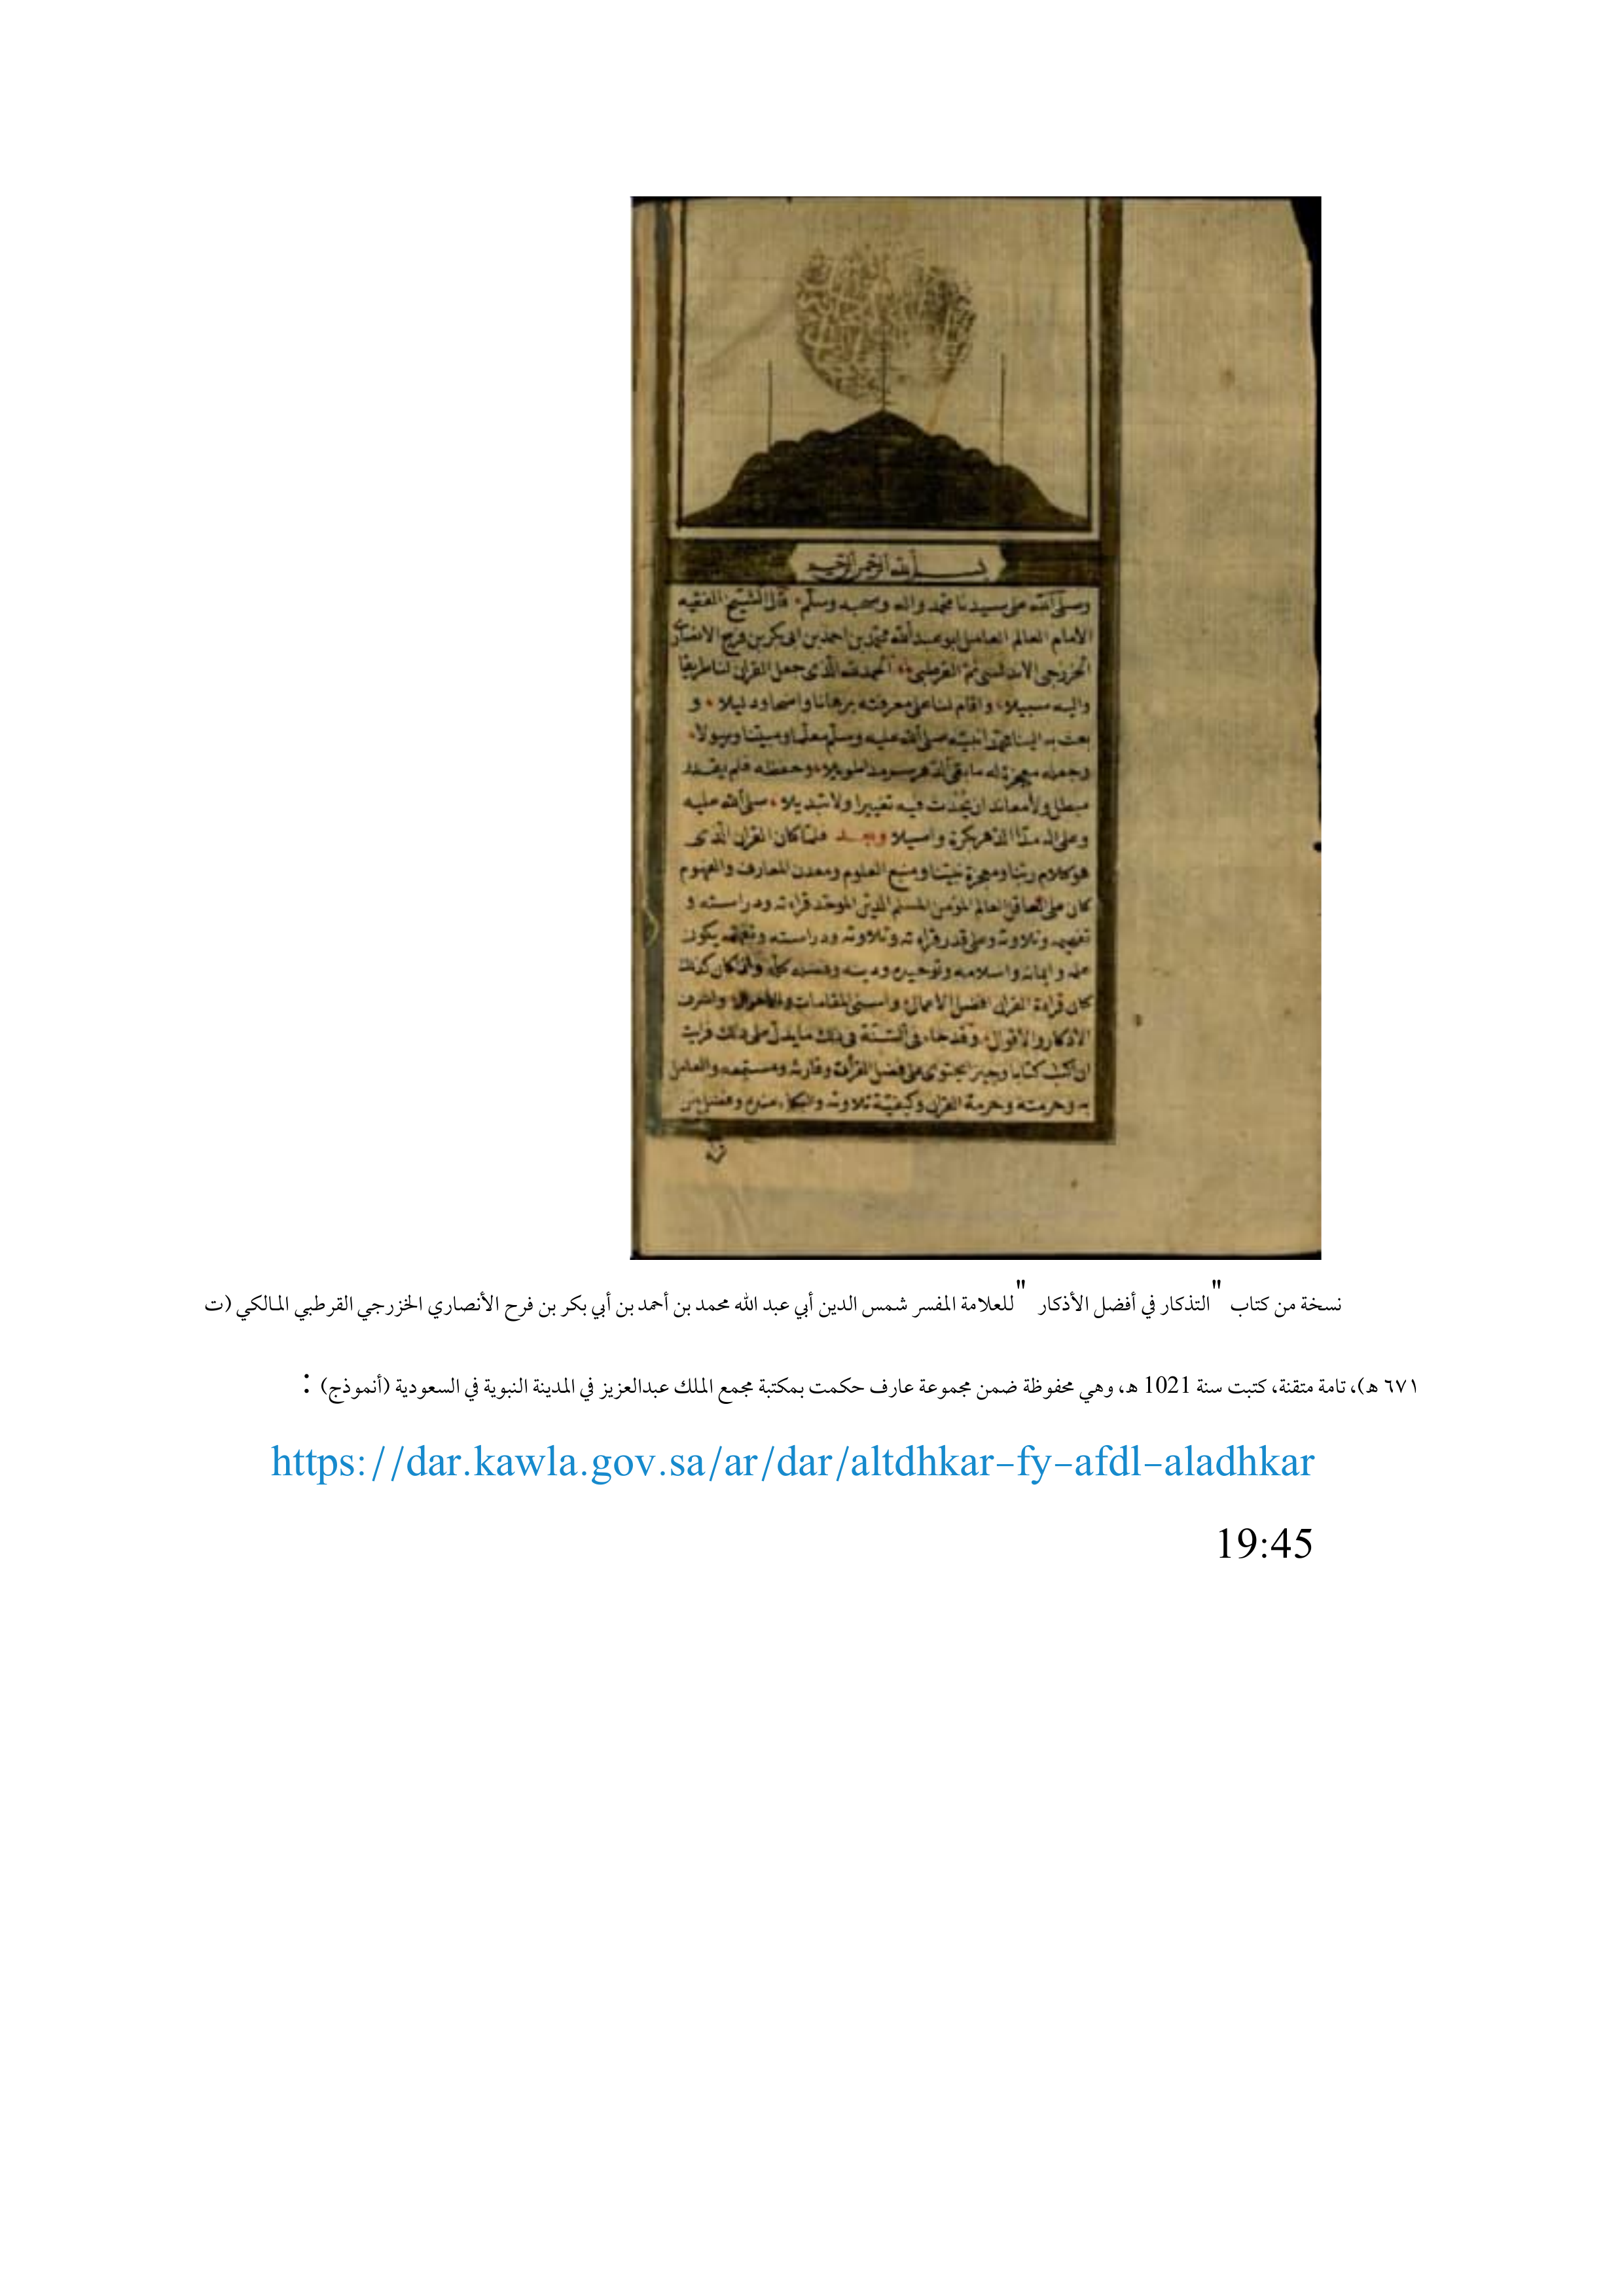 بسم الله الرحمن الرحيم
وصلى الله على سيدنا محمد واله وصحبه وسلم قال الشيخ الفقيه
الامام العالم العامل ابو عبد الله محمد بن احمد بن ابى بكر بن فرح الانصارى
الخزرجى الاندلسى ثم القرطبى الحمد لله الذى جعل القران لنا طريقا
واليه سبيلا واقام لنا على معرفته برهانا واضحا ودليلا و
بعث به الينا محمدا نبيه صلى الله عليه وسلم معلما ومبينا ورسولا
وجعله معجزة له ما بقى الدهر سرمدا طويلا وحفظه فلم يقدر
مبطل ولا معاند ان يحدث فيه تغييرا ولا تبديلا صلى الله عليه
وعلى اله مدا الدهر بكرة واصيلا وبعد فلما كان القران الذى
هو كلام ربنا ومعجزة نبينا ومنبع العلوم ومعدن المعارف والفهوم
كان على العاقل العالم المؤمن المسلم الدين الموحد قراءته ودراسته و
تفهمه وتلاوته وعلى قدر قراءته وتلاوته ودراسته وتفهمه يكون
علمه وايمانه واسلامه وتوحيده ودينه وفضله كله كان كذلك
كان قراءة القران افضل الاعمال واسنى المقامات والاحوال واشرف
الاذكار والاقوال وقد جاء فى السنة فى ذلك ما يدل على ذلك فرايت
ان اكتب كتابا وجيزا يحتوى على فضل القرآن وقارئه ومستمعه والعامل
به وحرمته وحرمة القران وكيفية تلاوته والبكاء عنده وفضل من
نسخة من كتاب "التذكار في أفضل الأذكار" للعلامة المفسر شمس الدين أبي عبد الله محمد بن أحمد بن أبي بكر بن فرح الأنصاري الخزرجي القرطبي المالكي (ت
٦٧١ هـ)، تامة متقنة، كتبت سنة 1021 هـ، وهي محفوظة ضمن مجموعة عارف حكمت بمكتبة مجمع الملك عبدالعزيز في المدينة النبوية في السعودية (أنموذج) :
https://dar.kawla.gov.sa/ar/dar/altdhkar-fy-afdl-aladhkar
19:45